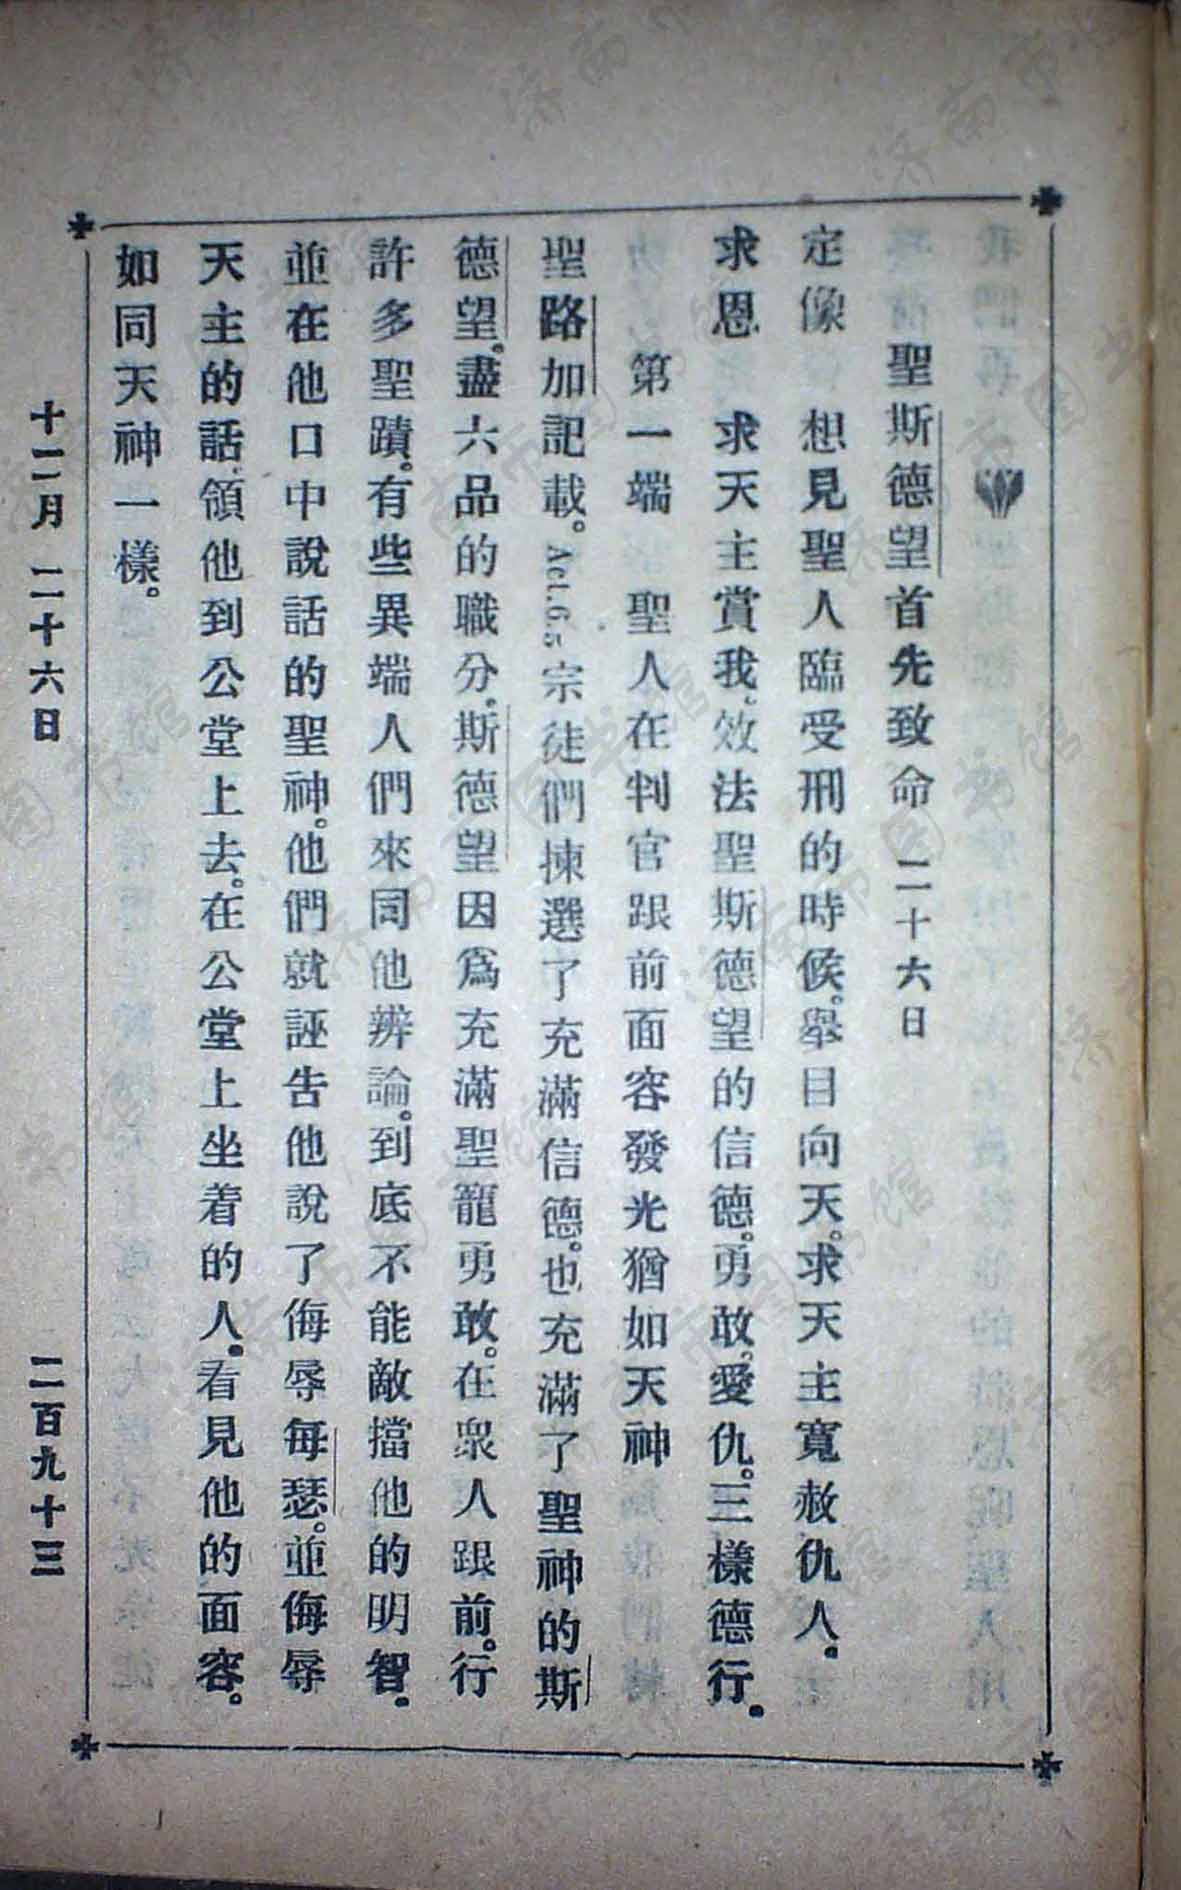 聖斯德望首先致命 二十六日
定像 想見聖人臨受刑的時候。舉目向天。求天主寬赦仇人。
求恩 求天主賞我、效法聖斯德望的信德。勇敢。愛仇。三樣德行。
第一端 聖人在判官跟前面容發光猶如天神
聖路加記載。Act.6.5宗徒們揀選了充滿信德。也充滿了聖神的斯
德望。盡六品的職分。斯德望因爲充滿聖寵勇敢。在衆人跟前。行
許多聖蹟。有些異端人們來同他辨論。到底不能敵擋他的明智。
並在他口中說話的聖神。他們就誣告他說了侮辱每瑟。並侮辱
天主的話、領他到公堂上去。在公堂上坐着的人。看見他的面容。
如同天神一樣。
十二月 二十六日
二百九十三
济南市图书馆